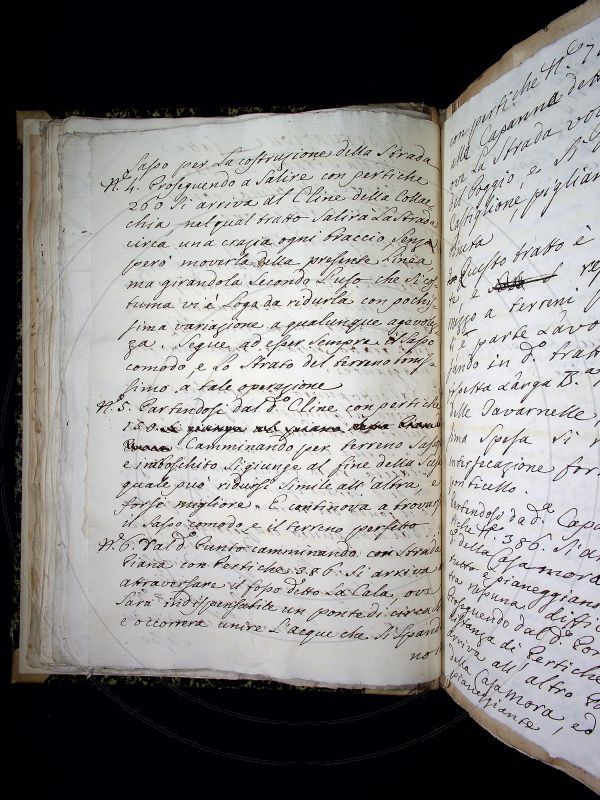 Sasso per La costruzione della Strada
N.º 4. Proseguendo a Salire con pertiche
260 Si arriva al Cline della Collac
chia nel qual tratto Salirà La Strada
circa una crazia ogni Braccio Senza
però moverla della presente Linea
ma girandola Secondo L'uso che Si co
tuma vi è Loga da ridurla con pochis
sima variazione a qualunque agevolez
za. Segue ad esser sempre il Sasso
comodo e Lo Strato del terreno
simo a tale operazione
N.º 5. Partendosi dal d.º Cline con pertiche
150.
Camminando per terreno Sassoso
e imboschito Si giunge al fine della
quale può ridursi Simile all'altra, e
forse migliore. E continova a trovarsi
il Sasso comodo e il terreno perfetto
N.º 6. Val d.º Punto camminando con Strada
Piana con pertiche 386. Si arriva a
atraversare il fosso detto La Cala, ove
Sarà indispensabile un ponte di circa
e occorrerà unire L'acque che Si Spando
no
con pertiche N.º
alla Capanna dett
ove La Strada vol
del Poggio, e
Castiglione, piglian
Questo tratto è
te e
mezzo a terreni
e parte Lavo
in d.º tratto
Larga B.ª
delle Tavarnelle,
ima Spesa Si
intersecazione for
ponticello.
Partendosi da d.ª Capa
tiche N.º 386. Si ar
d.º della Casa mora
tutto e pianeggian
ta nessuna diffic
Proseguendo dal d.º Pon
distanza di Pertiche
arriva all'altro fo
della Casa Mora, ed
pianeggiante,